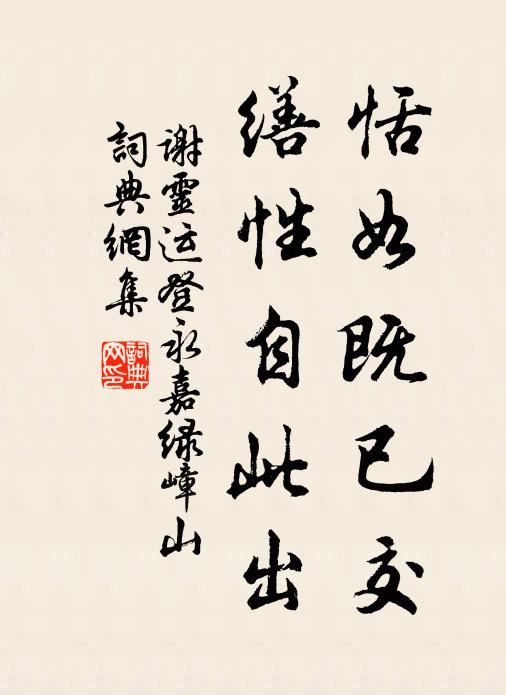 恬如既已交
缮性自此出
谢靈运登永嘉绿嶂山
詞典網集
詞典網印